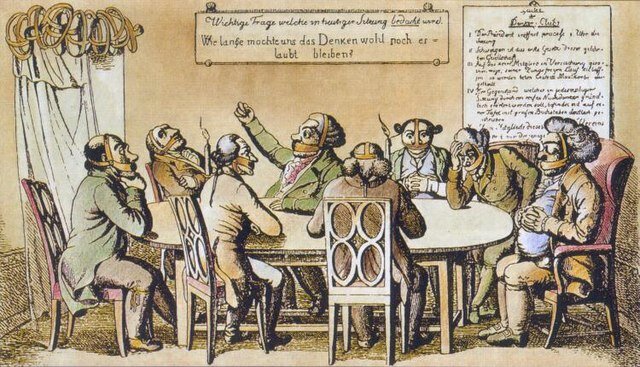 Wichtige Frage welche in heutiger Sitzung bedacht wird.
Wie lange möchte uns das Denken wohl noch er=
laubt bleiben?
des
Denker-Clubs
I Der Präsident eröffnet precise 8 Uhr die
Sitzung
II Schweigen ist das erste Gesetz dieser gelehr=
ten Gesellschaft
III Auf das kein Mitglied in Versuchung gera=
then möge, seiner Zunge freyen Lauf zu lass=
en so werden beim Eintritt Maulkörbe aus=
getheilt
IV Der Gegenstand welcher in jedesmaliger
Sitzung durch ein reifes Nachdenken gründ=
lich erörtert werden soll, befindet sich auf ei=
ner Tafel mit grossen Buchstaben deutlich ge=
schrieben